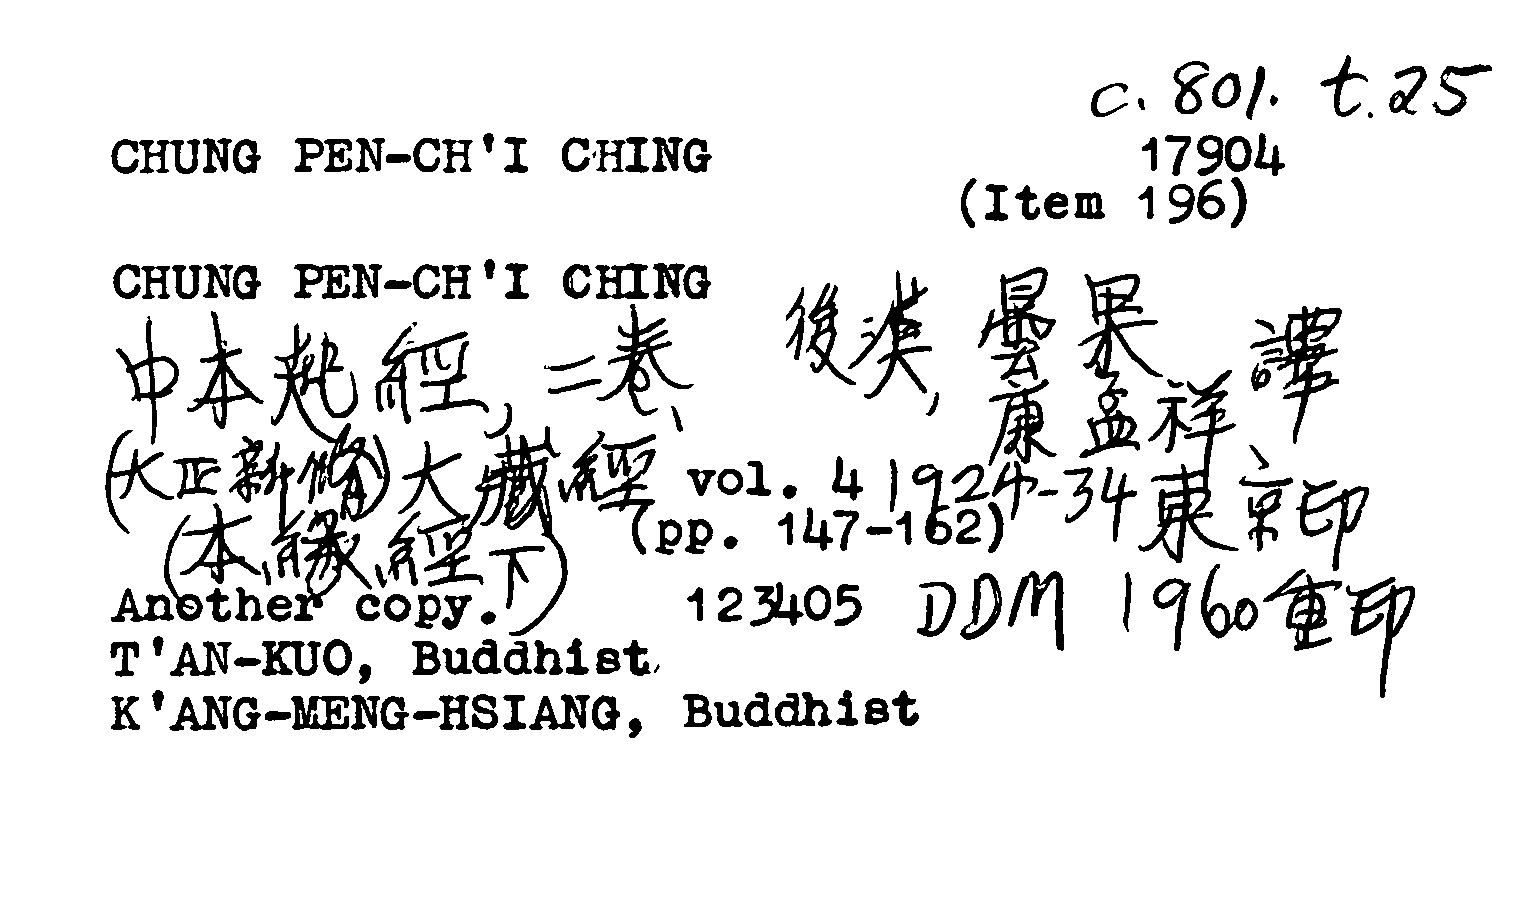 c. 801. t.25
CHUNG PEN-CH'I CHING 17904
(Item 196)
CHUNG PEN-CH'I CHING
中本起經, 二卷、 後漢, 曇果 康孟祥 譯
(大正新脩)大藏經 vol. 4 1924-34東京印
(本緣經下) (pp. 147-162)
Another copy. 123405 DDM 1960重印
T'AN-KUO, Buddhist
K'ANG-MENG-HSIANG, Buddhist